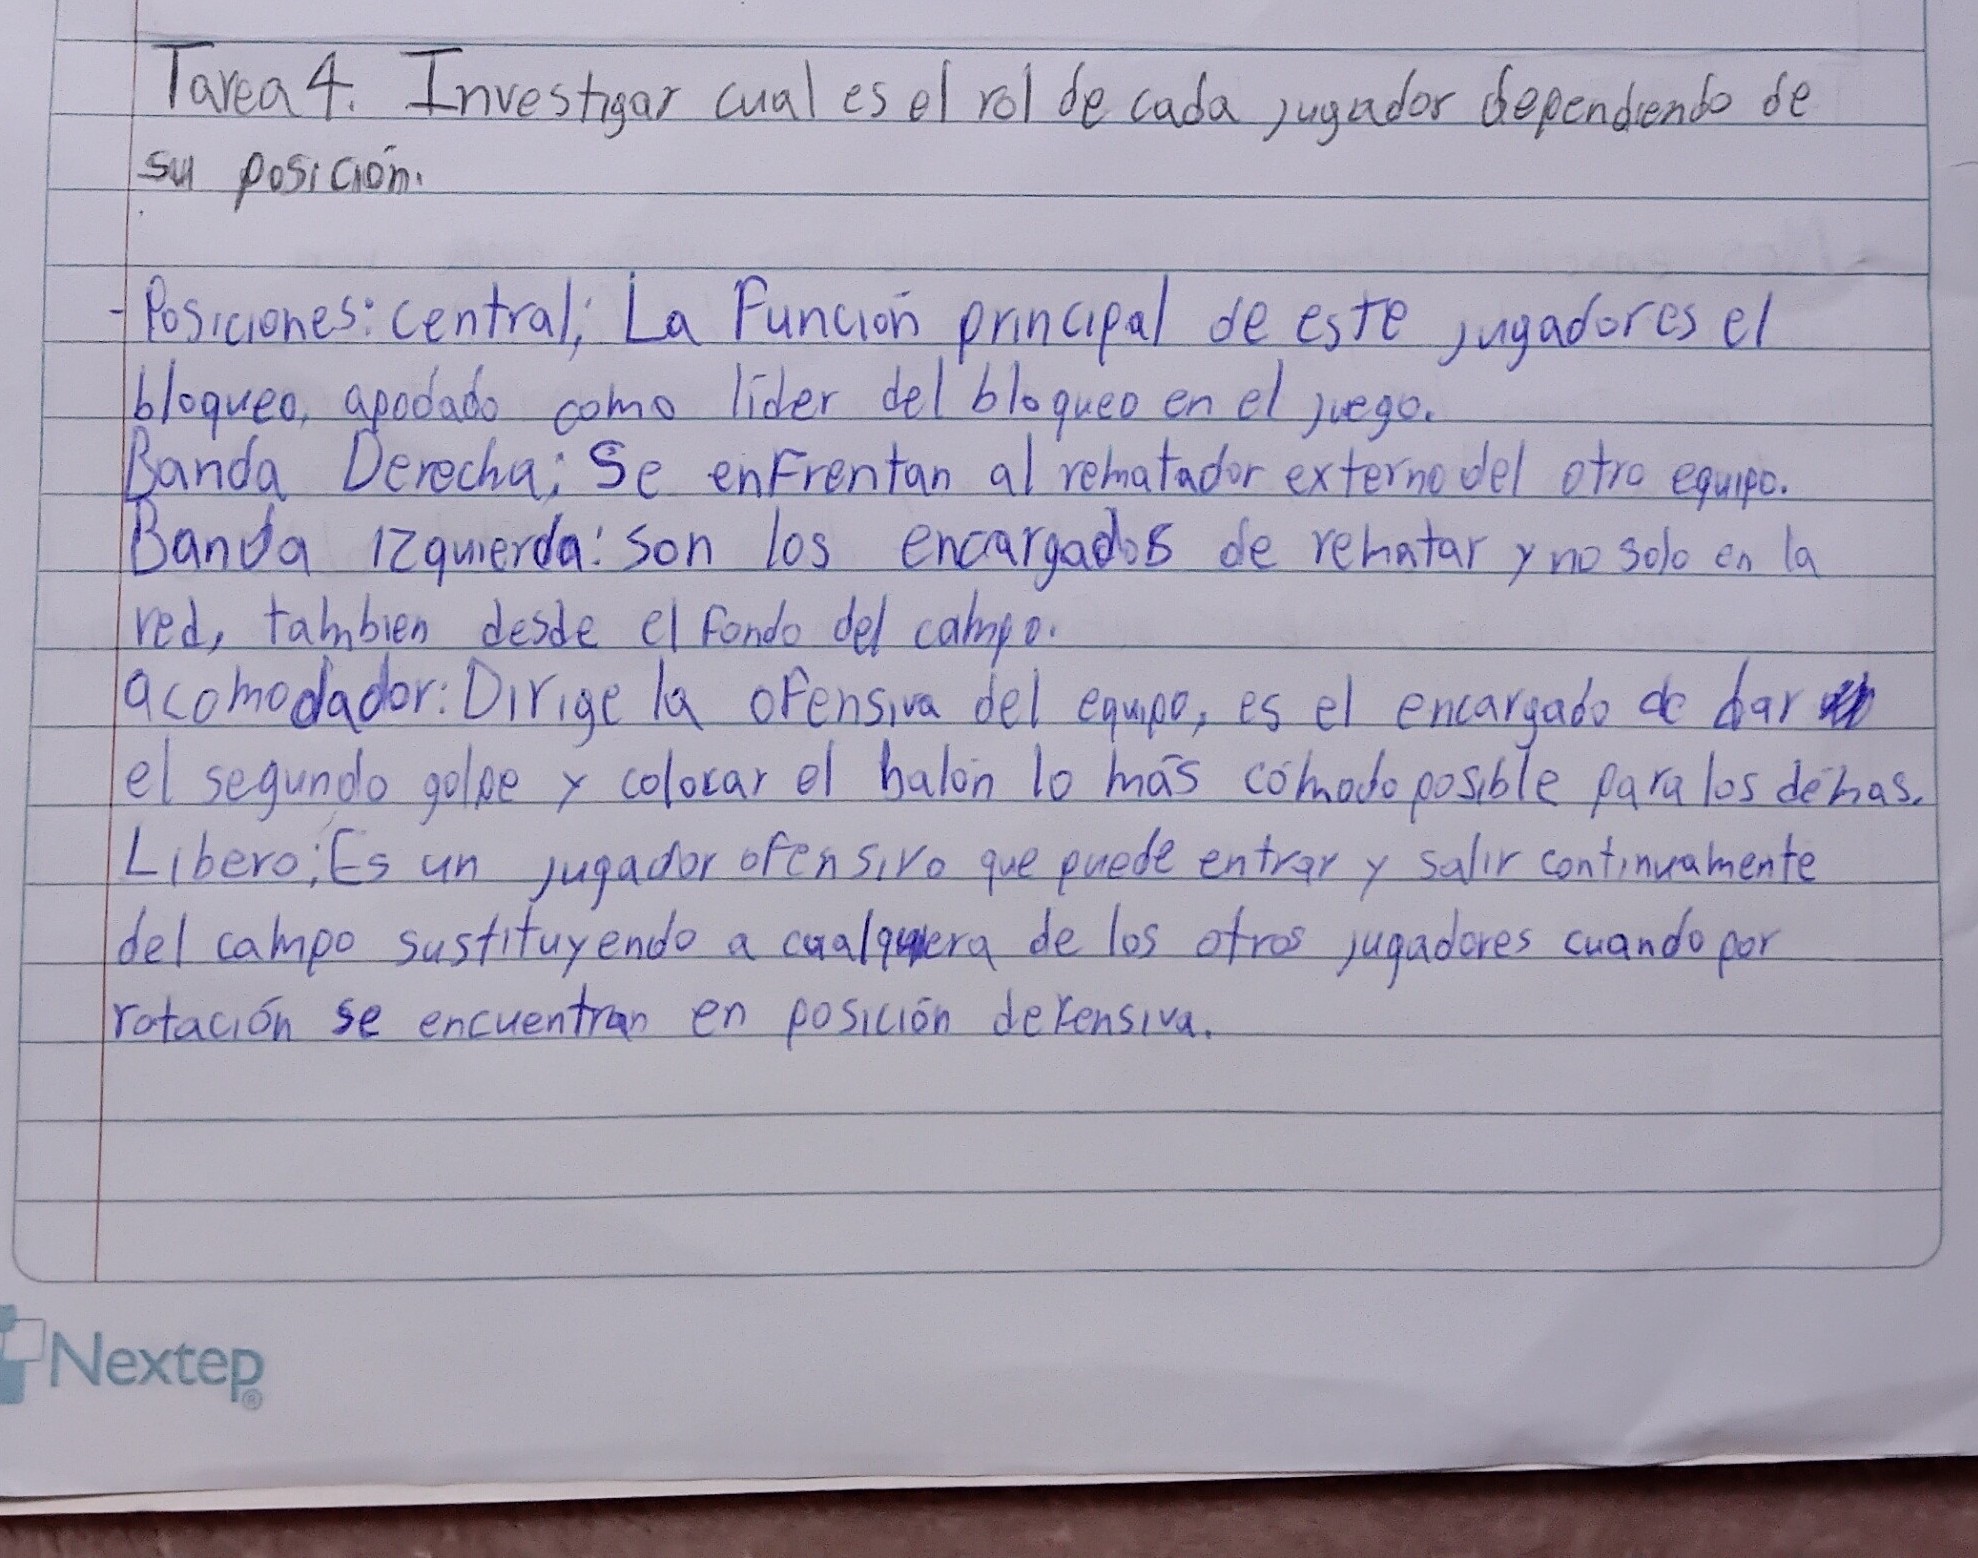 Tarea 4. Investigar cual es el rol de cada jugador dependiendo de
su posición.
- Posiciones: central; La Función principal de este jugadores el
bloqueo, apodado como líder del bloqueo en el juego.
Banda Derecha; Se enFrentan al rematador externo del otro equipo.
Banda izquierda: son los encargados de rematar y no solo en la
red, tambien desde el fondo del campo.
acomodador: Dirige la oFensiva del equipo, es el encargado de dar
el segundo golpe y colocar el balón lo más cómodo posible para los démas.
Libero; Es un jugador ofensivo que puede entrar y salir continuamente
del campo sustituyendo a cualquiera de los otros jugadores cuando por
rotación se encuentran en posición defensiva.
Nextep®